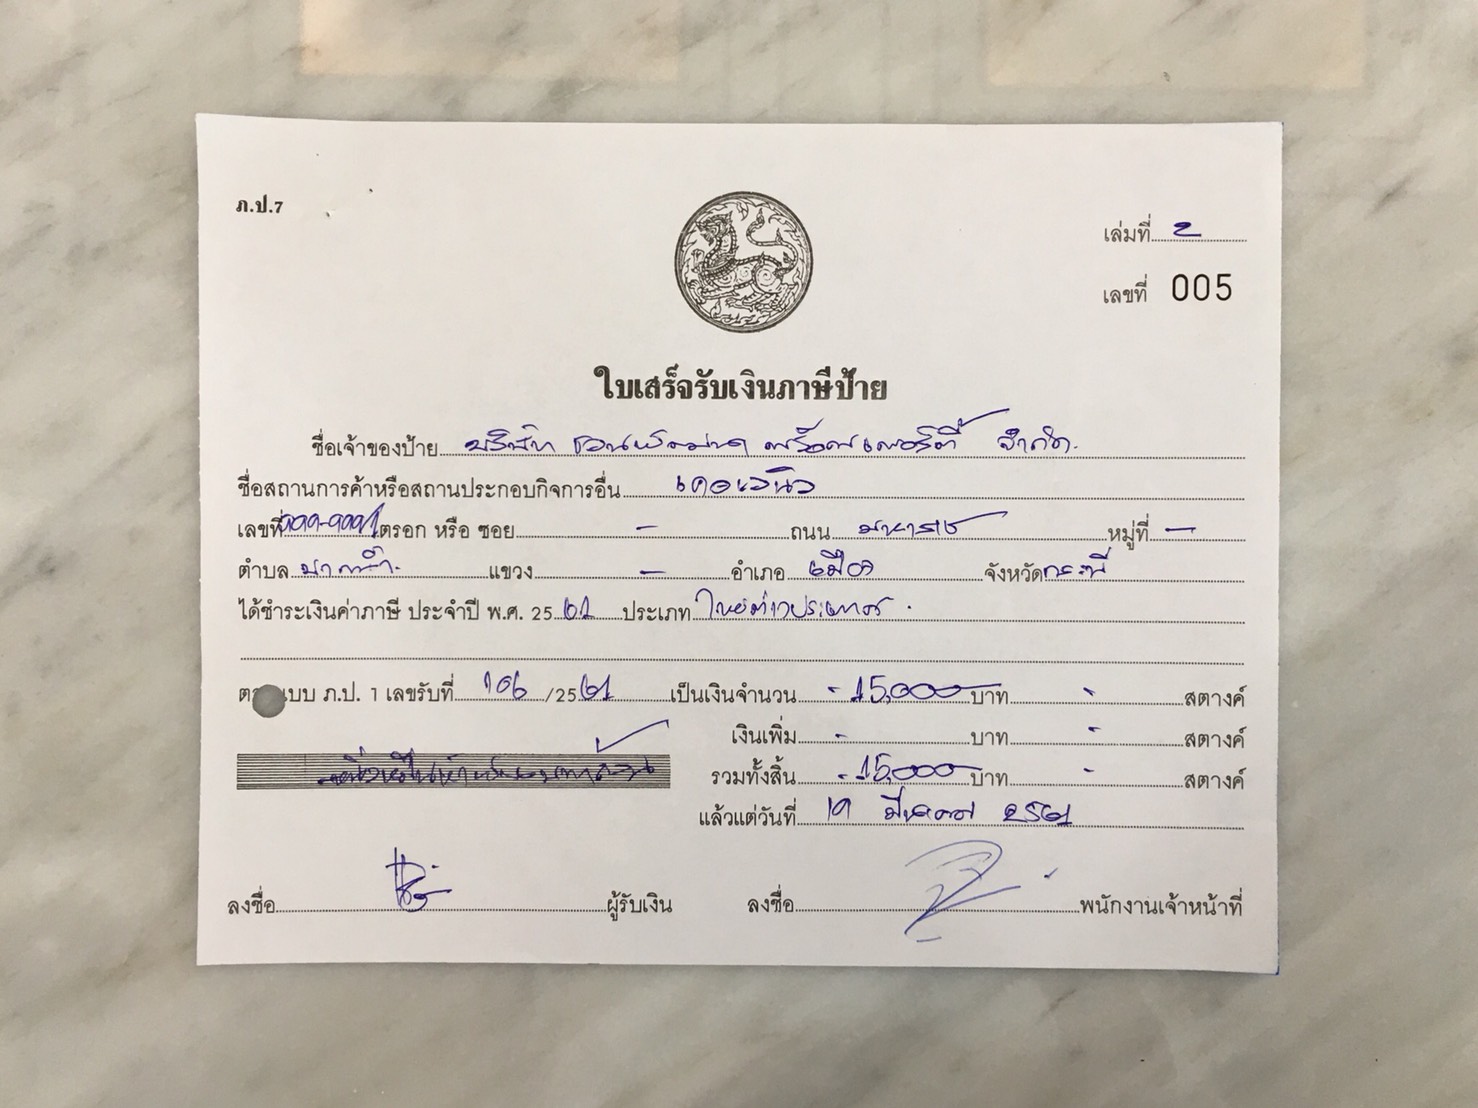 ภ.ป.7
เล่มที่ 2
เลขที่ 005
ใบเสร็จรับเงินภาษีป้าย
ชื่อเจ้าของป้าย บริษัท พร็อพเพอร์ตี้ จำกัด.
ชื่อสถานการค้าหรือสถานประกอบกิจการอื่น
เลขที่ 999-999/1 ตรอก หรือ ซอย - ถนน มหาราช หมู่ที่ -
ตำบล แขวง - อำเภอ เมือง จังหวัด กระบี่
ได้ชำระเงินค่าภาษี ประจำปี พ.ศ. 2561 ประเภท
ตามแบบ ภ.ป. 1 เลขรับที่ 106 /2561 เป็นเงินจำนวน - 15,000 - บาท - สตางค์
เงินเพิ่ม - บาท - สตางค์
รวมทั้งสิ้น - 15,000 - บาท - สตางค์
แล้วแต่วันที่ 19 มีนาคม 2561
ลงชื่อ ผู้รับเงิน ลงชื่อ พนักงานเจ้าหน้าที่